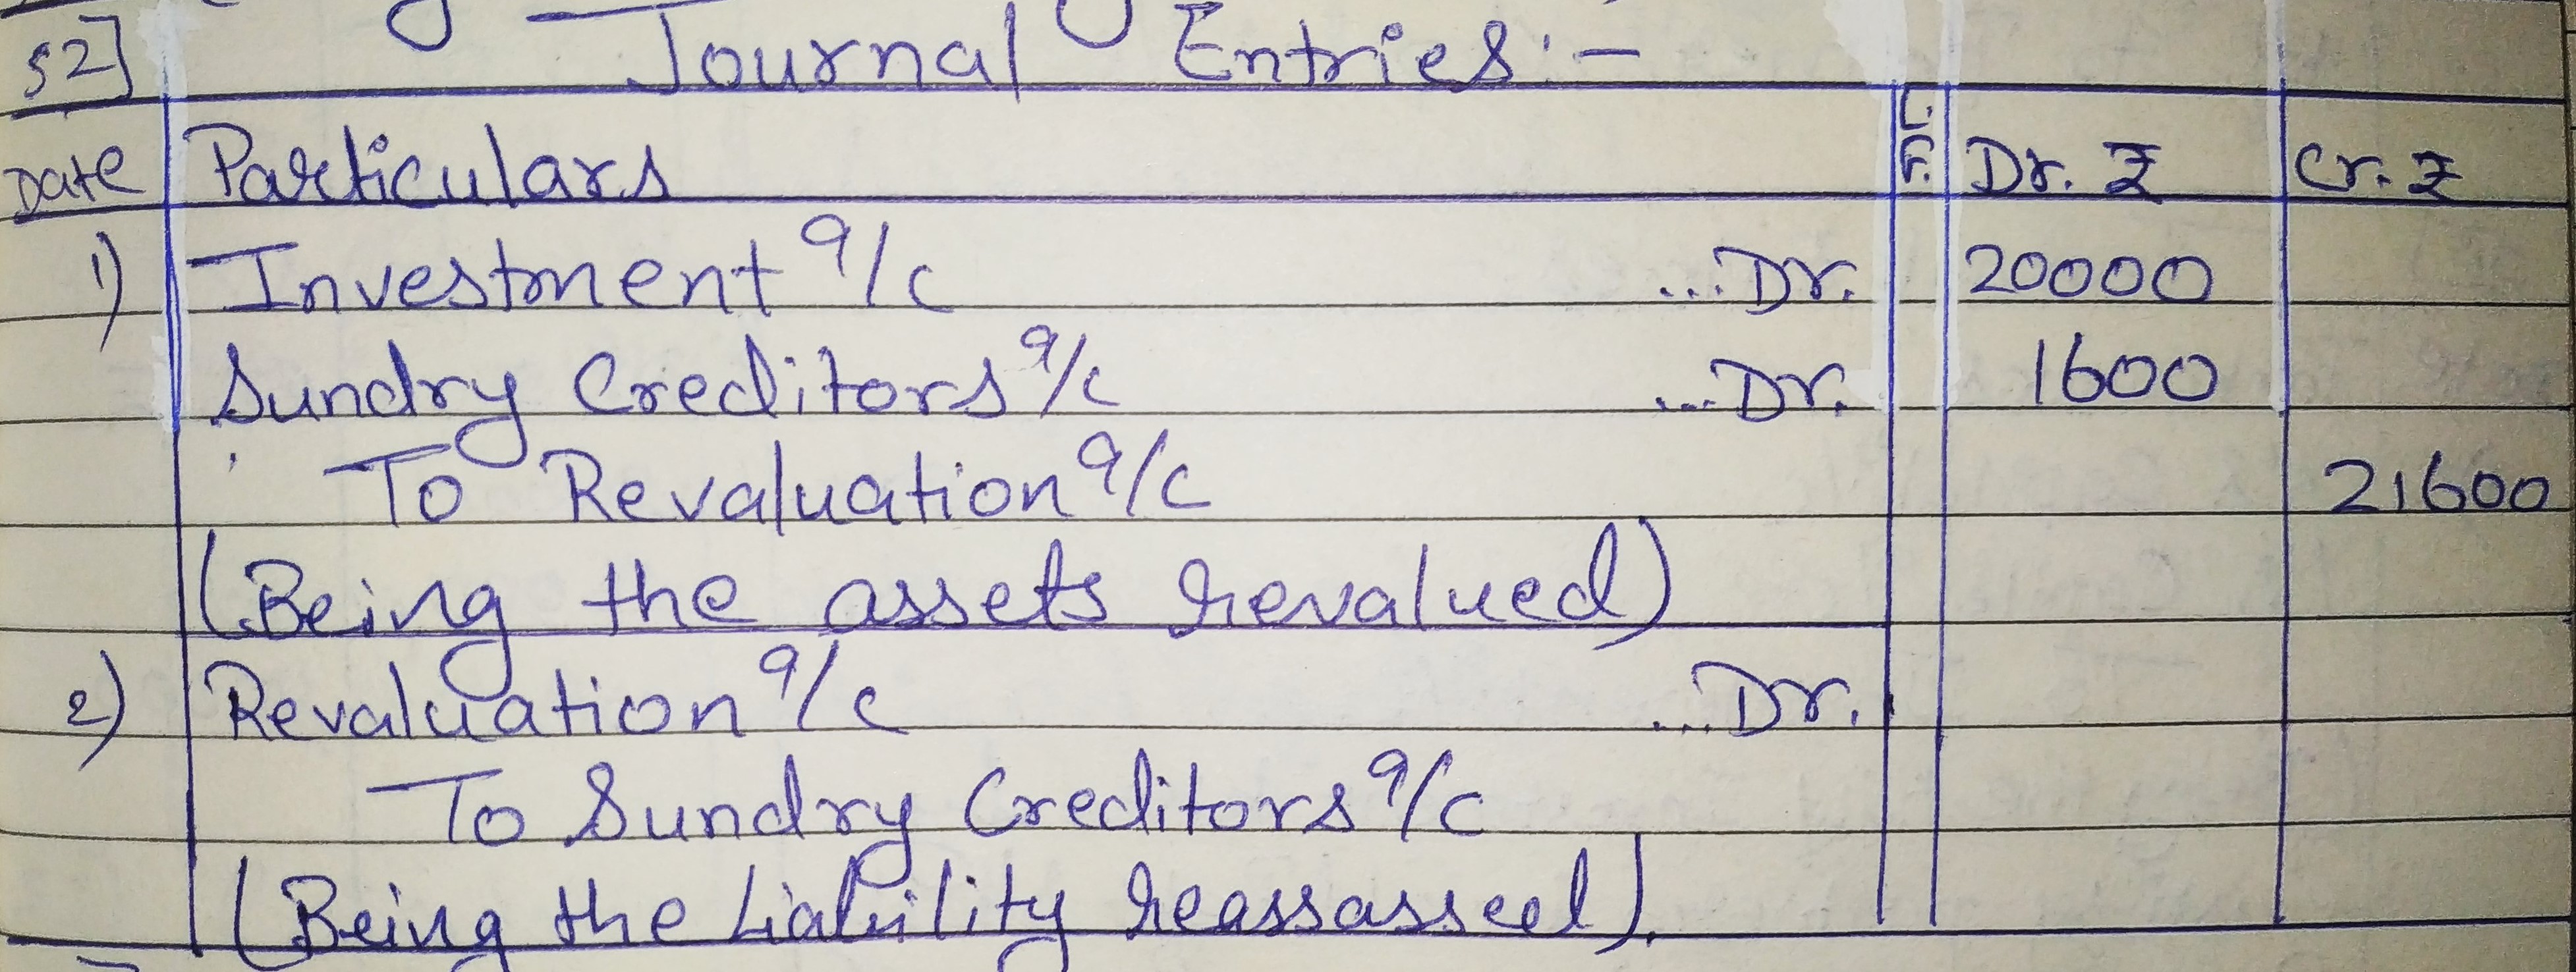 52] Journal Entries :-
Date Particulars L.F. Dr. ₹ Cr. ₹
1) Investment a/c ...Dr. 20000
Sundry Creditors a/c ...Dr. 1600
To Revaluation a/c 21600
(Being the assets revalued)
2) Revaluation a/c ...Dr.
To Sundry Creditors a/c
(Being the Liability reassassed).